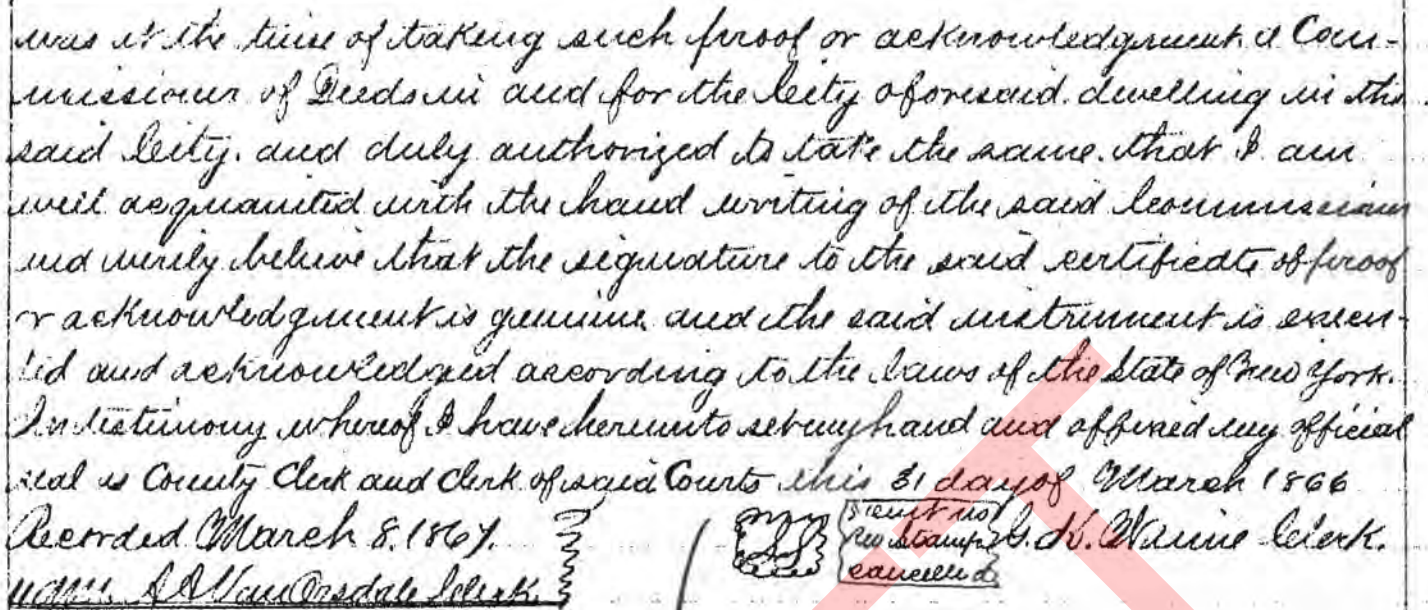 was at the time of taking such proof or acknowledgment a Com-
missioner of Deeds in and for the City aforesaid. dwelling in the
said City. and duly authorized to take the same. that I am
well acquainted with the hand writing of the said Commissioner
and verily believe that the signature to the said certificate of proof
or acknowledgment is genuine. and the said instrument is execu-
ted and acknowledged according to the laws of the State of New York.
In testimony whereof I have hereunto set my hand and affixed my official
seal as County Clerk and Clerk of said Courts this 31 day of March 1866
Recorded March 8. 1867. cent no Rev Stamp cancelled Clerk.
A A Van Orsdale Clerk.